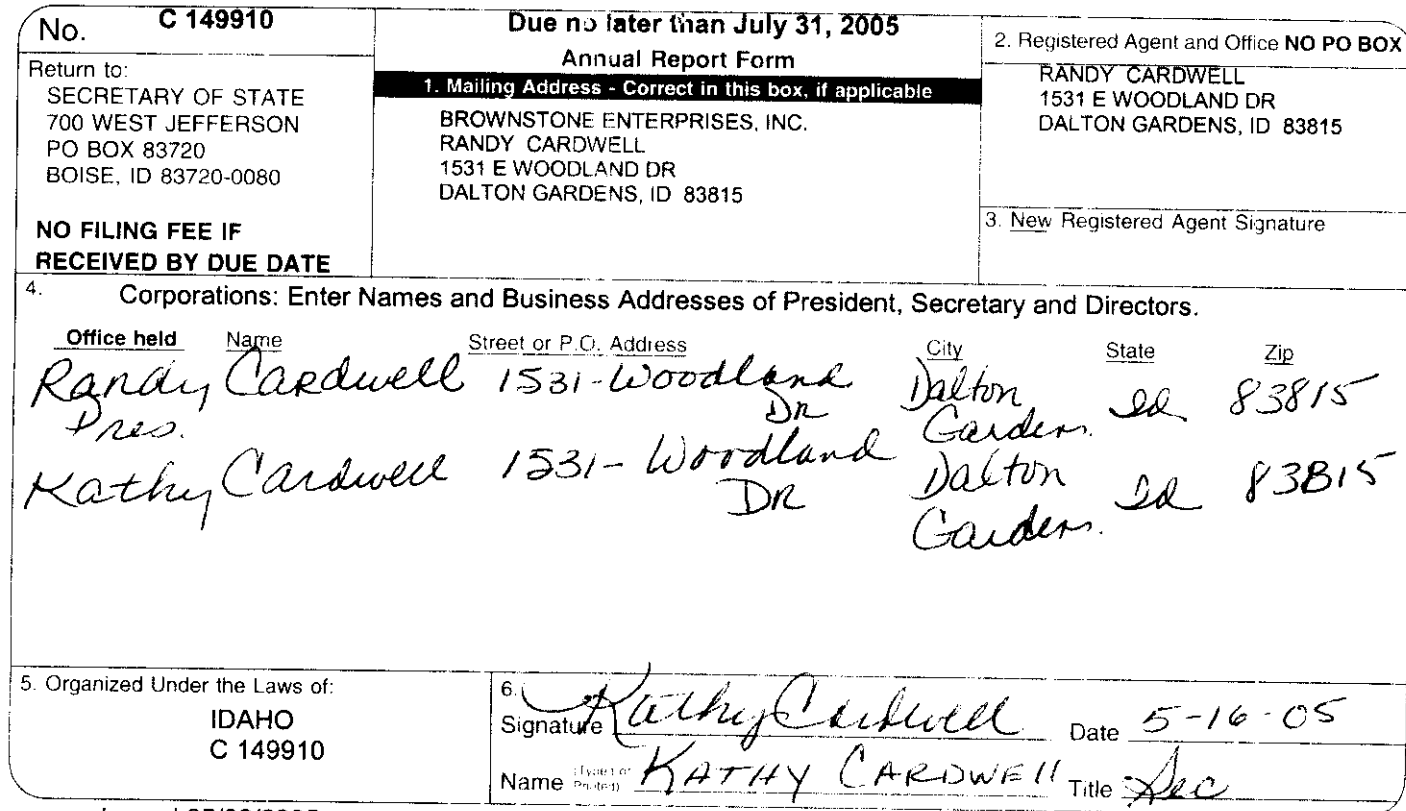 No. C 149910
Return to:
SECRETARY OF STATE
700 WEST JEFFERSON
PO BOX 83720
BOISE, ID 83720-0080
NO FILING FEE IF
RECEIVED BY DUE DATE
Due no later than July 31, 2005
Annual Report Form
1. Mailing Address - Correct in this box, if applicable
BROWNSTONE ENTERPRISES, INC.
RANDY CARDWELL
1531 E WOODLAND DR
DALTON GARDENS, ID 83815
2. Registered Agent and Office NO PO BOX
RANDY CARDWELL
1531 E WOODLAND DR
DALTON GARDENS, ID 83815
3. New Registered Agent Signature
4. Corporations: Enter Names and Business Addresses of President, Secretary and Directors.
Office held Name Street or P.O. Address City State Zip
Randy Cardwell 1531-Woodland Dalton Id 83815
Pres. Dr Gardens.
Kathy Cardwell 1531- Woodland Dalton Id 83815
DR Gardens.
5. Organized Under the Laws of:
IDAHO
C 149910
6.
Signature Kathy Cardwell Date 5-16-05
Name (Type or Printed) KATHY CARDWEll Title Sec